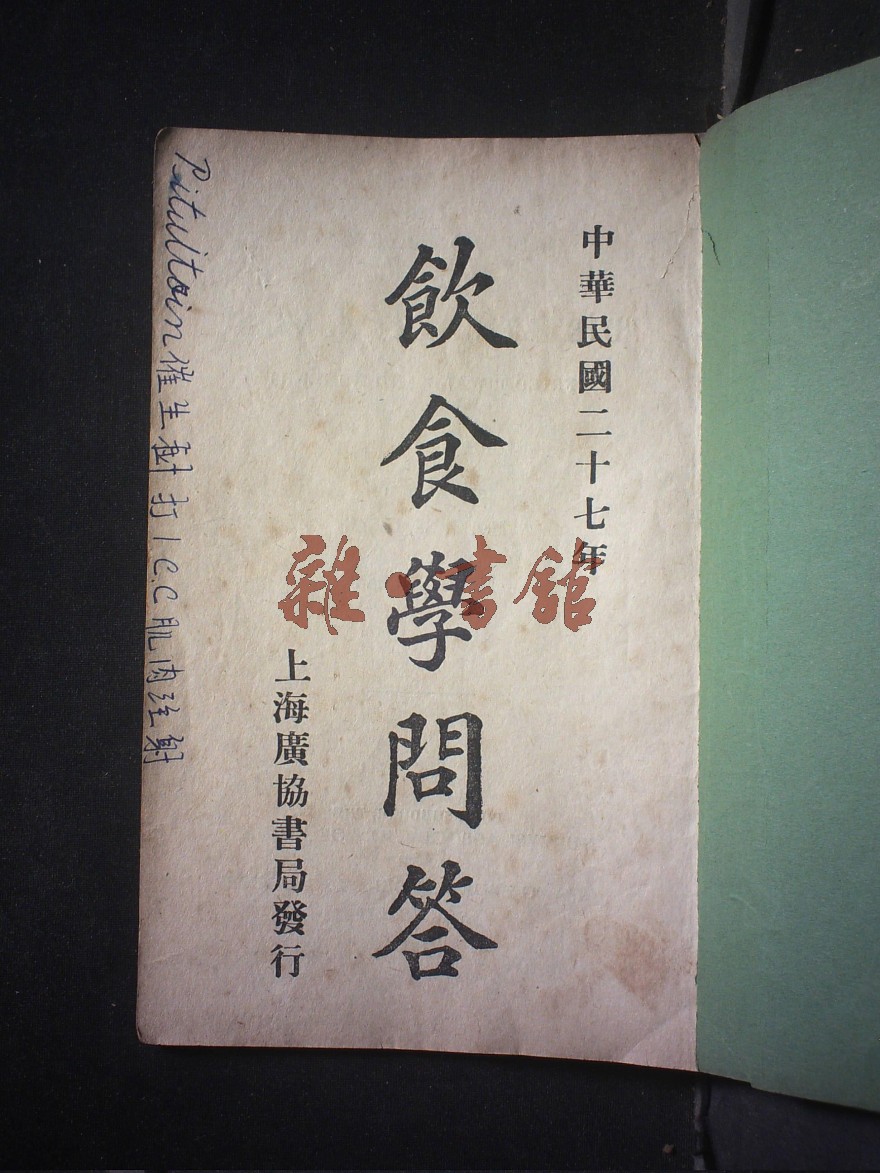 中華民國二十七年
飲食學問答
上海廣協書局發行
Pituitoin催生 打1C.C肌肉注射
雜·書館